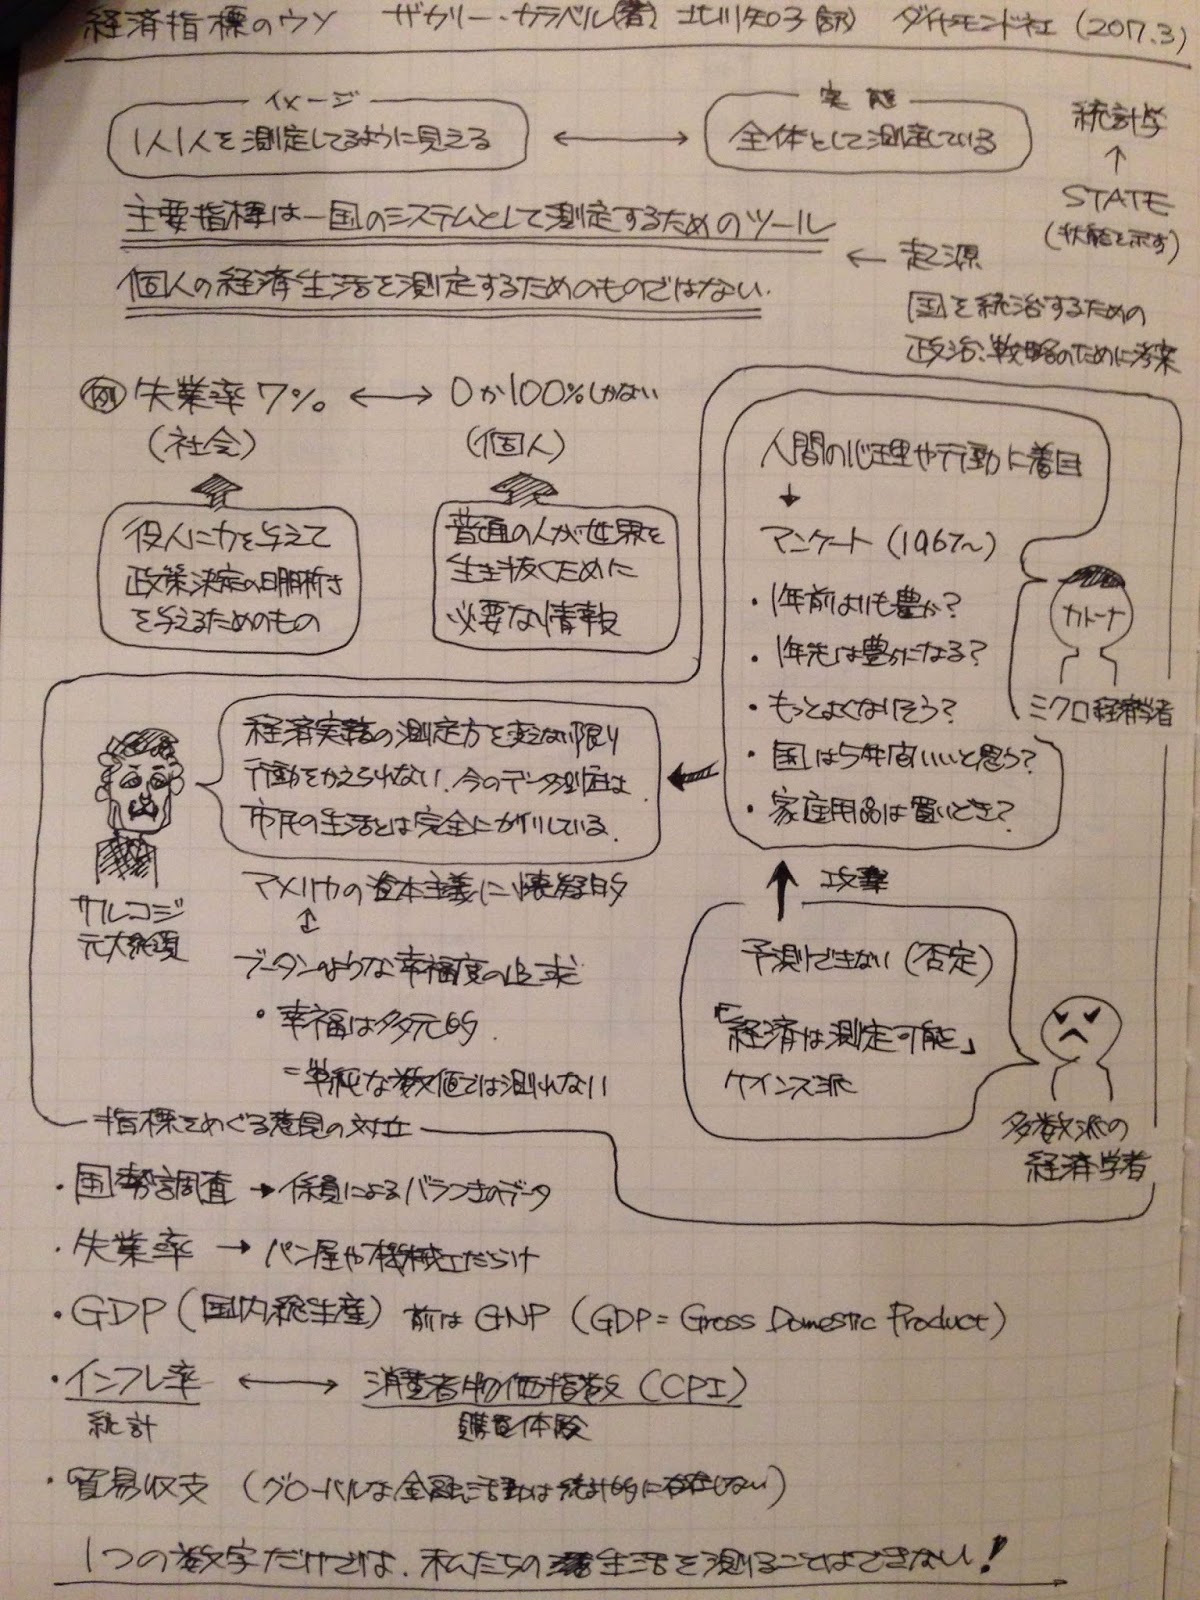 経済指標のウソ ザカリー・カラベル(著) 北川知子(訳) ダイヤモンド社 (2017.3)
イメージ
1人1人を測定してるように見える
実態
全体として測定している
統計学
↑
STATE
(状態を示す)
主要指標は一国のシステムとして測定するためのツール
個人の経済生活を測定するためのものではない.
← 起源
国を統治するための
政治、戦略のために考案
例 失業率7% ←→ 0か100%しかない
(社会) (個人)
役人に力を与えて
政策決定の目的
を与えるためのもの
普通の人が世界を
生き抜くために
必要な情報
人間の心理や行動に着目
↓
アンケート (1967~)
・1年前よりも豊か?
・1年先は豊かになる?
・もっとよくなりそう?
・国は5年間いいと思う?
・家庭用品は買いどき?
カトーナ
ミクロ経済学者
経済実態の測定方を変えない限り
行動をかえられない. 今のデータ測定は
市民の生活とは完全にかいりしている.
サルコジ
元大統領
アメリカの資本主義に懐疑的
↕
ブータンのような幸福度の追求
・幸福は多元的
=単純な数値では測れない
攻撃
予測できない (否定)
「経済は測定可能」
ケインズ派
多数派の
経済学者
指標をめぐる意見の対立
・国勢調査 → 係員によるバラつきのデータ
・失業率 → パン屋や機械工だらけ
・GDP (国内総生産) 前は GNP (GDP = Gross Domestic Product)
・インフレ率 ←→ 消費者物価指数 (CPI)
統計 購買体験
・貿易収支 (グローバルな金融活動は統計的に存在しない)
1つの数字だけでは、私たちの生活を測ることはできない!